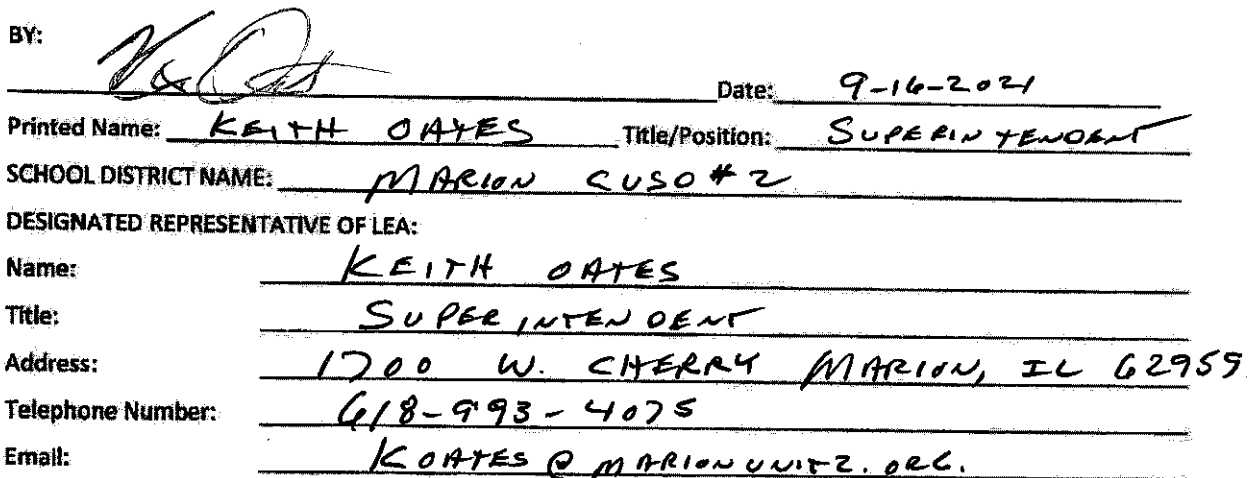 BY:
Date: 9-16-2021
Printed Name: KEITH OATES Title/Position: SUPERINTENDENT
SCHOOL DISTRICT NAME: MARION CUSD #2
DESIGNATED REPRESENTATIVE OF LEA:
Name: KEITH OATES
Title: SUPERINTENDENT
Address: 1700 W. CHERRY MARION, IL 62959
Telephone Number: 618-993-4075
Email: KOATES@MARIONUNIT2.ORG.